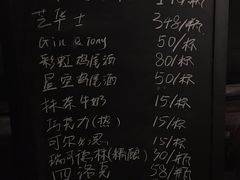 芝华士 348/瓶
Gin & Tony 50/杯
彩虹鸡尾酒 80/杯
星空鸡尾酒 50/杯
抹茶牛奶 15/杯
巧克力(热) 15/杯
可尔必思 15/杯
瑞可德林(精酿) 30/瓶
四洛克 58/瓶